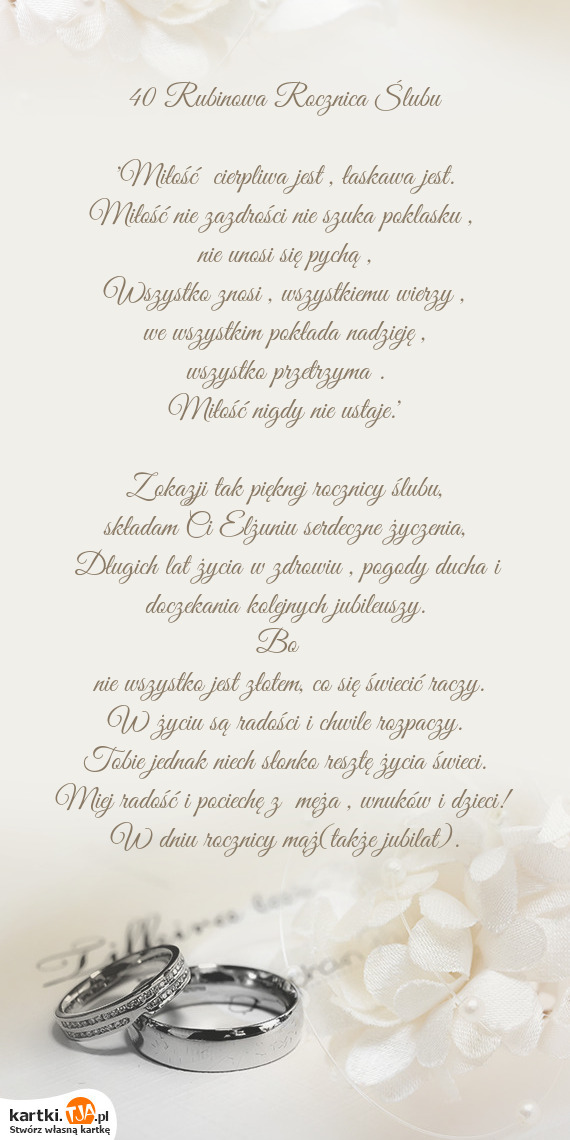 40 Rubinowa Rocznica Ślubu
'Miłość cierpliwa jest , łaskawa jest.
Miłość nie zazdrości nie szuka poklasku ,
nie unosi się pychą ,
Wszystko znosi , wszystkiemu wierzy ,
we wszystkim pokłada nadzieję ,
wszystko przetrzyma .
Miłość nigdy nie ustaje.'
Zokazji tak pięknej rocznicy ślubu,
składam Ci Elżuniu serdeczne życzenia,
Długich lat życia w zdrowiu , pogody ducha i
doczekania kolejnych jubileuszy.
Bo
nie wszystko jest złotem, co się świecić raczy.
W życiu są radości i chwile rozpaczy.
Tobie jednak niech słonko resztę życia świeci.
Miej radość i pociechę z męża , wnuków i dzieci!
W dniu rocznicy mąż(także jubilat).
kartki.TJA.pl
Stwórz własną kartkę